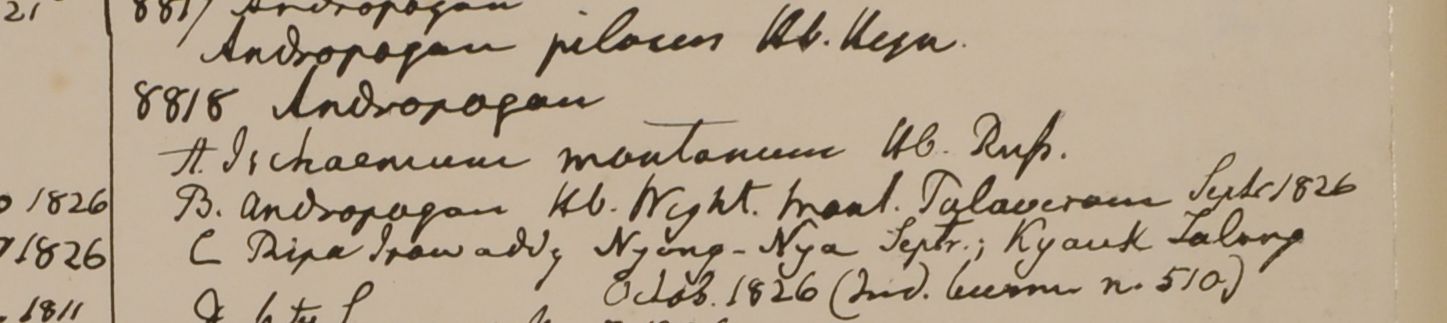 21
8817 Andropogon
Andropogon pilosus Hb. Heyn.
8818 Andropogon
A. Ischaemum montanum Hb. Russ.
1826 B. Andropogon Hb. Wight. mont. Talaveram Septr 1826
1826 C Ripa Irawaddy Nyong-Nya Septr.; Kyauk Talong
Octob. 1826 (Ind. burm. n. 510.)
1811